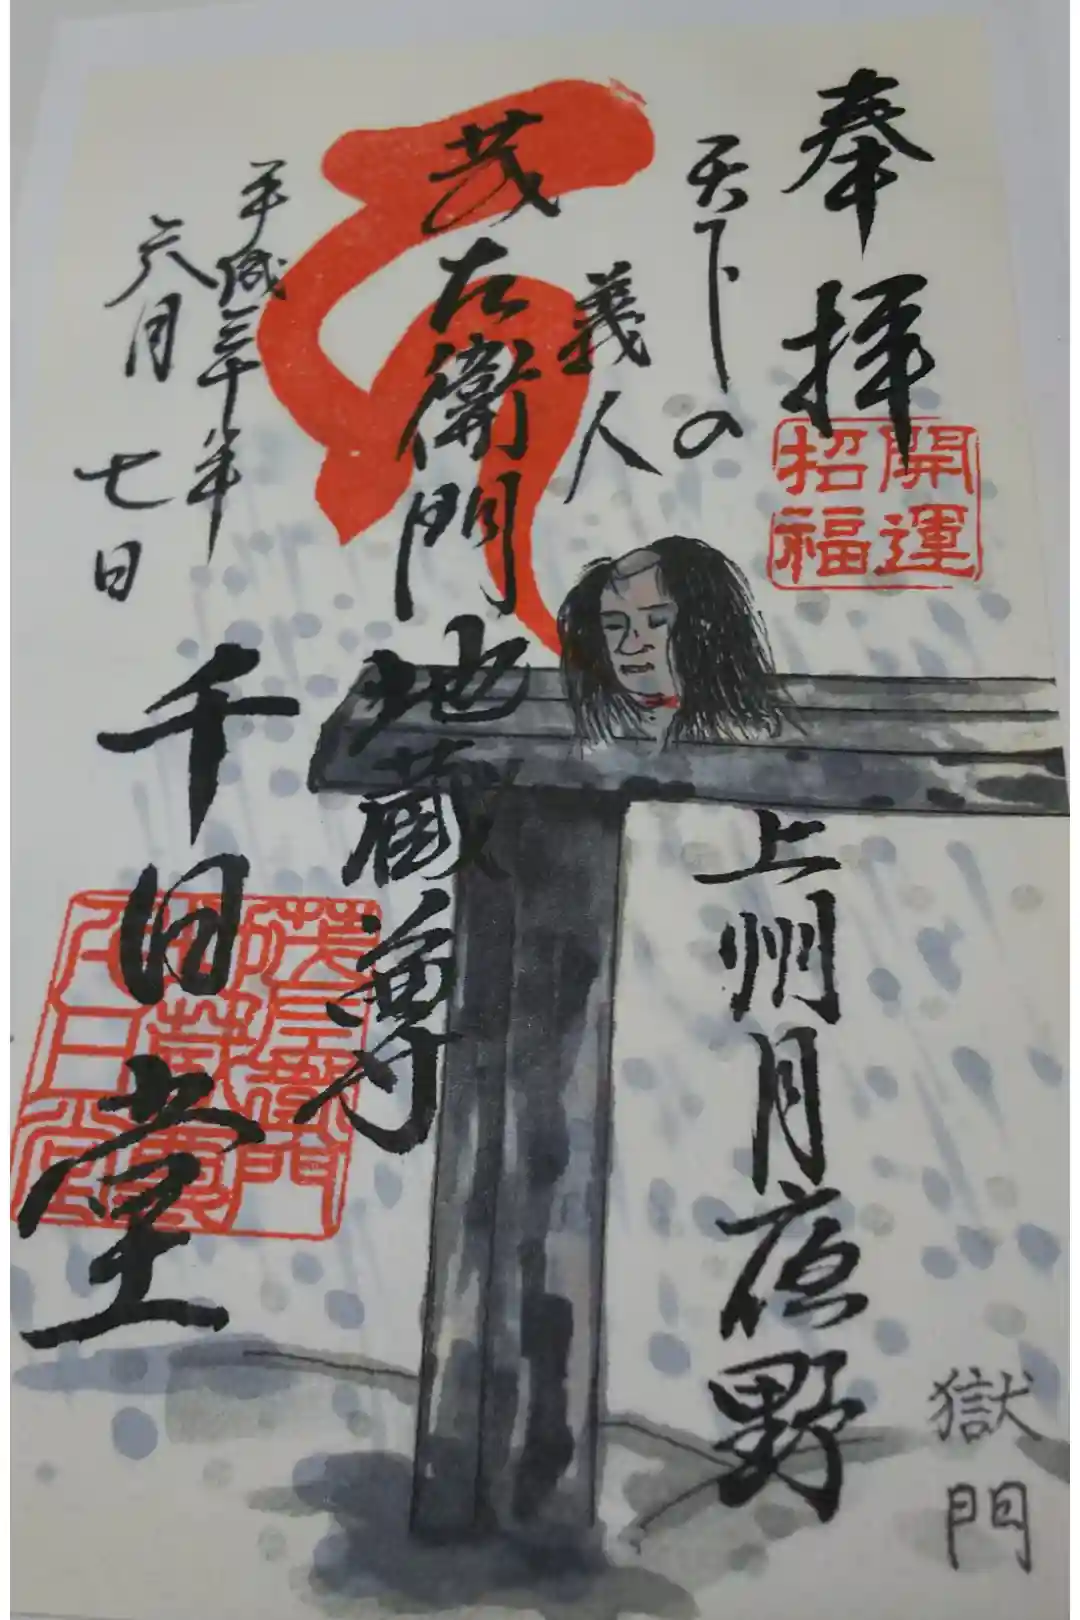 奉拝
開運
招福
天下の
義人
茂左衛門地蔵尊
上州月夜野
獄門
平成三十年
六月
七日
千日堂